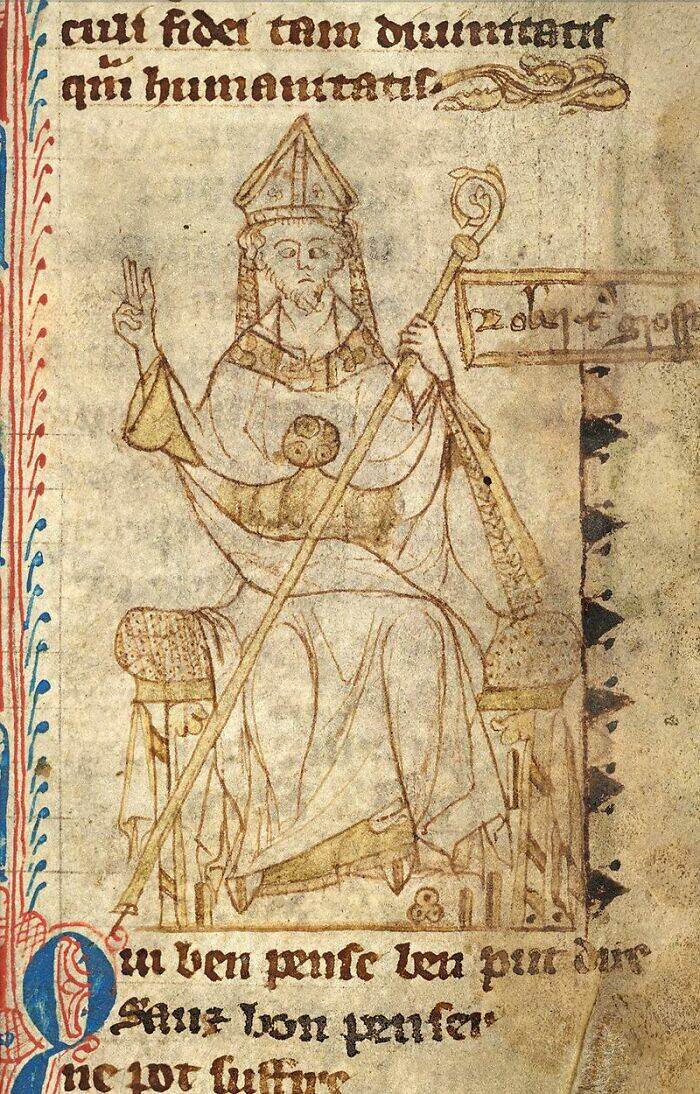 culi fidei tam diuinitatis
qͫ humanitatis.
Robert᾽ gross
Qui ben pense ben put dire
Sanz bon penser
ne pot suffire